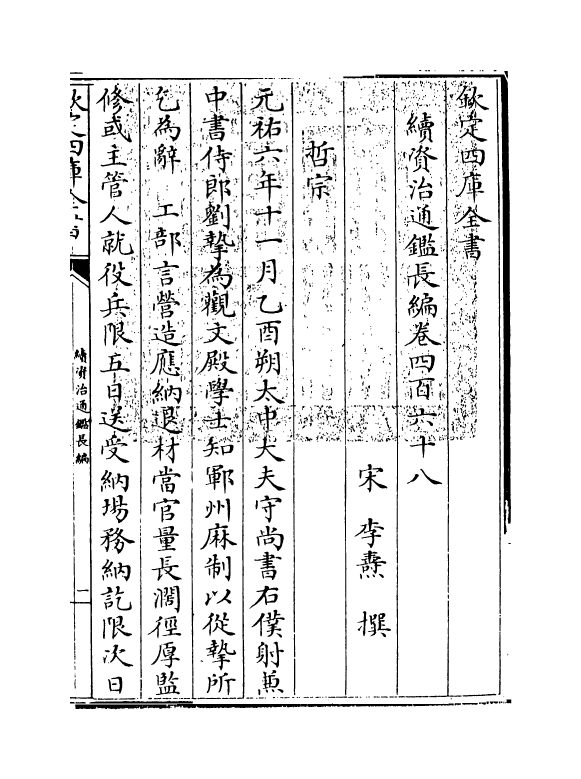 欽定四庫全書
續資治通鑑長編卷四百六十八
宋 李燾 撰
哲宗
元祐六年十一月乙酉朔太中大夫守尚書右僕射兼
中書侍郎劉摯為觀文殿學士知鄆州麻制以從摯所
乞為辭 工部言營造應納退材當官量長濶徑厚監
修或主管人就役兵限五日送受納場務納訖限次日
欽定四庫全書
續資治通鑑長編
一